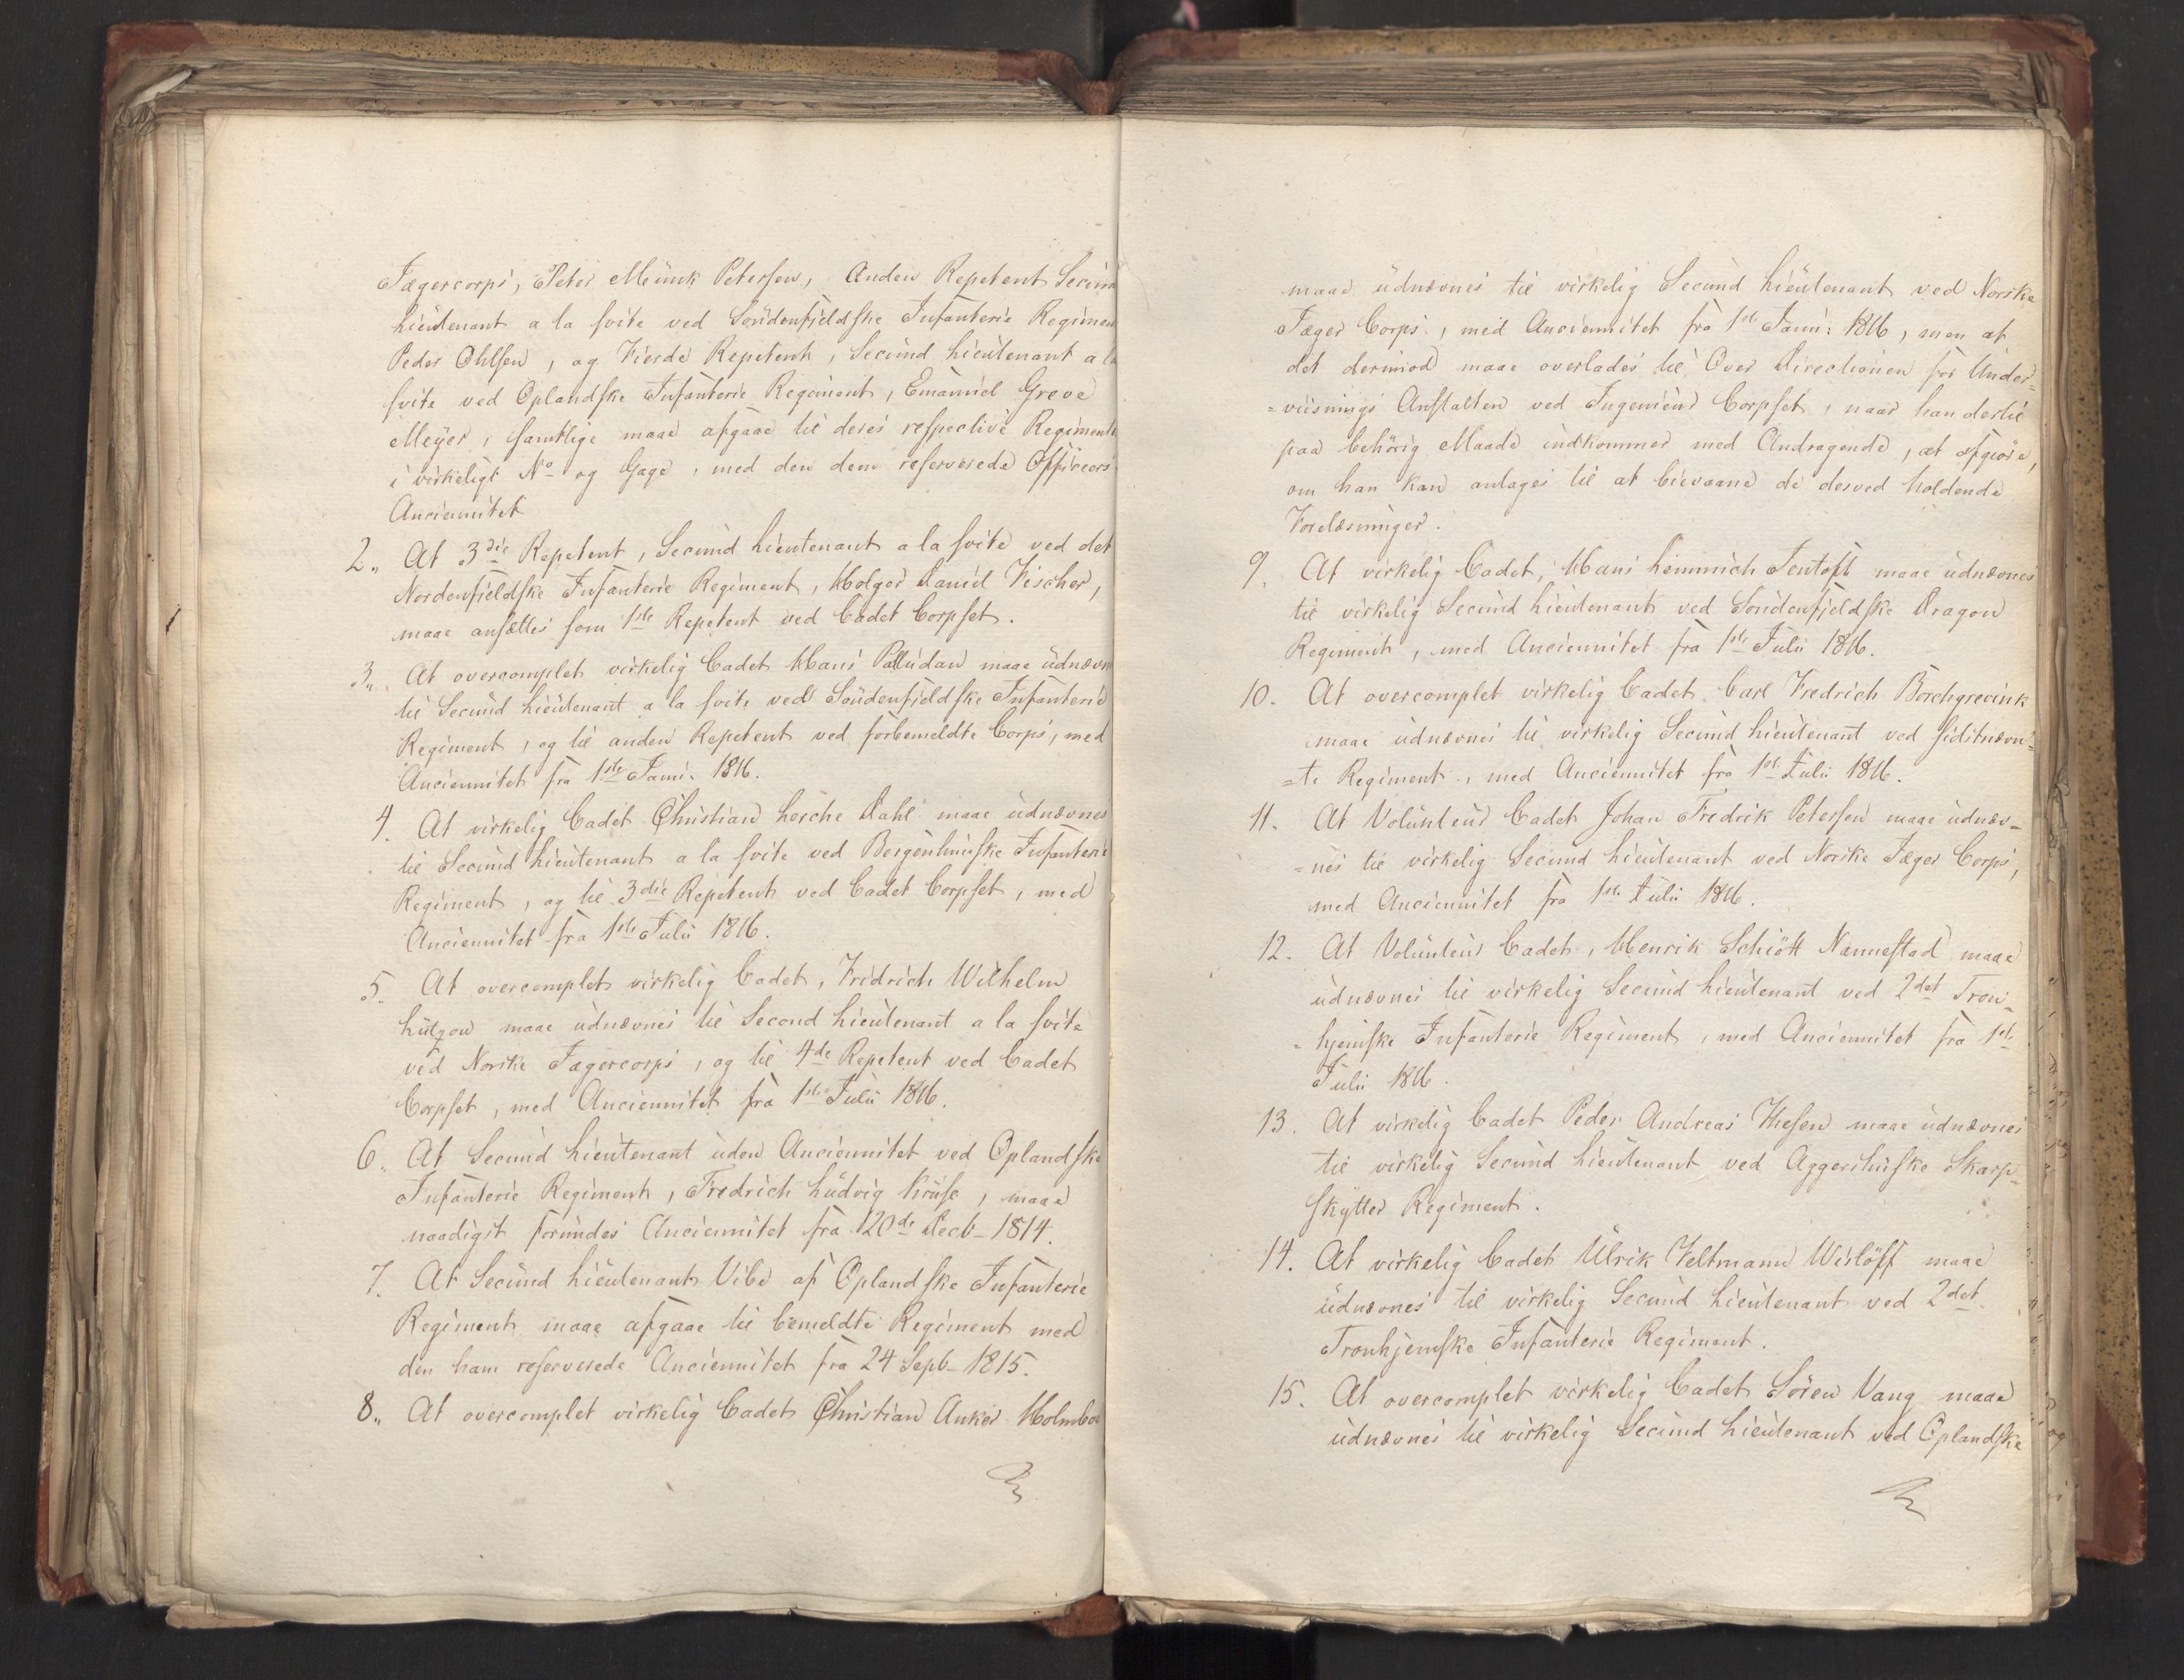 Jægercorps, Peter Munk Petersen, Anden Repetent Secund
Lieutenant a la svite ved Søndenfjeldske Infanterie Regimen
Peder Ohlsen, og Fierde Repetent, Secund Lieutenant a la
svite ved Oplandske Infanterie Regiment, Emanuel Greve
Meÿer, samtlige maae afgaae til deres respective Regimente
i virkeligt No og Gage, med den dem reserverede Officeers
Anciennitet
2. At 3die Repetent, Secund Lieutenant a la svite ved det
Nordenfieldske Infanterie Regiment, Holger Daniel Fischer,
maae ansættes som 1ste Repetent ved Cadet Corpset.
3. At overcomplet virkelig Cadet Hans Palludan maae udnævn
til Secund Lieutenant a la svite ved Søndenfjeldske Infanterie
Regiment, og til anden Repetent ved forbemeldte Corps, med
Anciennitet fra 1ste Janu: 1816.
4. At virkelig Cadet Christian Lerche Dahl maae udnævnes
til Secund Lieutenant a la svite ved Bergenhuuske Infanterie
Regiment, og til 3die Repetent ved Cadet Corpset, med
Anciennitet fra 1ste Julii 1816.
5. At overcomplet virkelig Cadet, Fridrich Wilhelm
Lützow maae udnævnes til Second Lieutenant a la svite
ved Norske Jægercorps, og til 4de Repetent ved Cadet
Corpset, med Anciennitet fra 1ste Julii 1816.
6. At Secund Lieutenant uden Anciennitet ved Oplandske
Infanterie Regiment, Fredrich Ludvig Kruse, maae
naadigst forundes Anciennitet fra 20de Decb- 1814.
7. At Secund Lieutenant Vibe af Oplandske Infanterie
Regiment maae afgaae til bemeldte Regiment med
den ham reserverede Anciennitet fra 24 Sepb- 1815.
8. At overcomplet virkelig Cadet Christian Anker Holmboe
maae udnævnes til virkelig Secund Lieutenant ved Norske
Jæger Corps, med Anciennitet fra 1ste Janu: 1816, men at
det derimod maae overlades til Over Directionen for Under=
=viisnings Anstalten ved Ingenieur Corpset, naar han dertil
paa behørig Maade indkommer med Andragende, at afgiøre,
om han kan antages til at bievaane de derved holdende
Forelæsninger.
9. At virkelig Cadet, Hans Hemmich Jentoft maae udnævnes
til virkelig Secund Lieutenant ved Søndenfjeldske Dragon
Regiment, med Anciennitet fra 1ste Julii 1816.
10. At overcomplet virkelig Cadet Carl Fredrich Borchgrevink
maae udnævnes til virkelig Secund Lieutenant ved sidstnævn=
=te Regiment, med Anciennitet fra 1ste Julii 1816.
11. At Volunteur Cadet Johan Fredrik Petersen maae udnæv=
=nes til virkelig Secund Lieutenant ved Norske Jæger Corps,
med Anciennitet fra 1ste Julii 1816.
12. At Volunteur Cadet, Henrik Schiött Nannestad maae
udnævnes til virkelig Secund Lieutenant ved 2det Tron=
=hjemske Infanterie Regiment, med Anciennitet fra 1ste
Julii 1816.
13. At virkelig Cadet Peder Andreas Thesen maae udnævnes
til virkelig Secund Lieutenant ved Aggershuuske Skarp=
skytter Regiment.
14. At virkelig Cadet Ulrik Feltmann Wislöff maae
udnævnes til virkelig Secund Lieutenant ved 2det
Tronhjemske Infanterie Regiment.
15. At overcomplet virkelig Cadet Sören Vang maae
udnævnes til virkelig Secund Lieutenant ved Oplandske